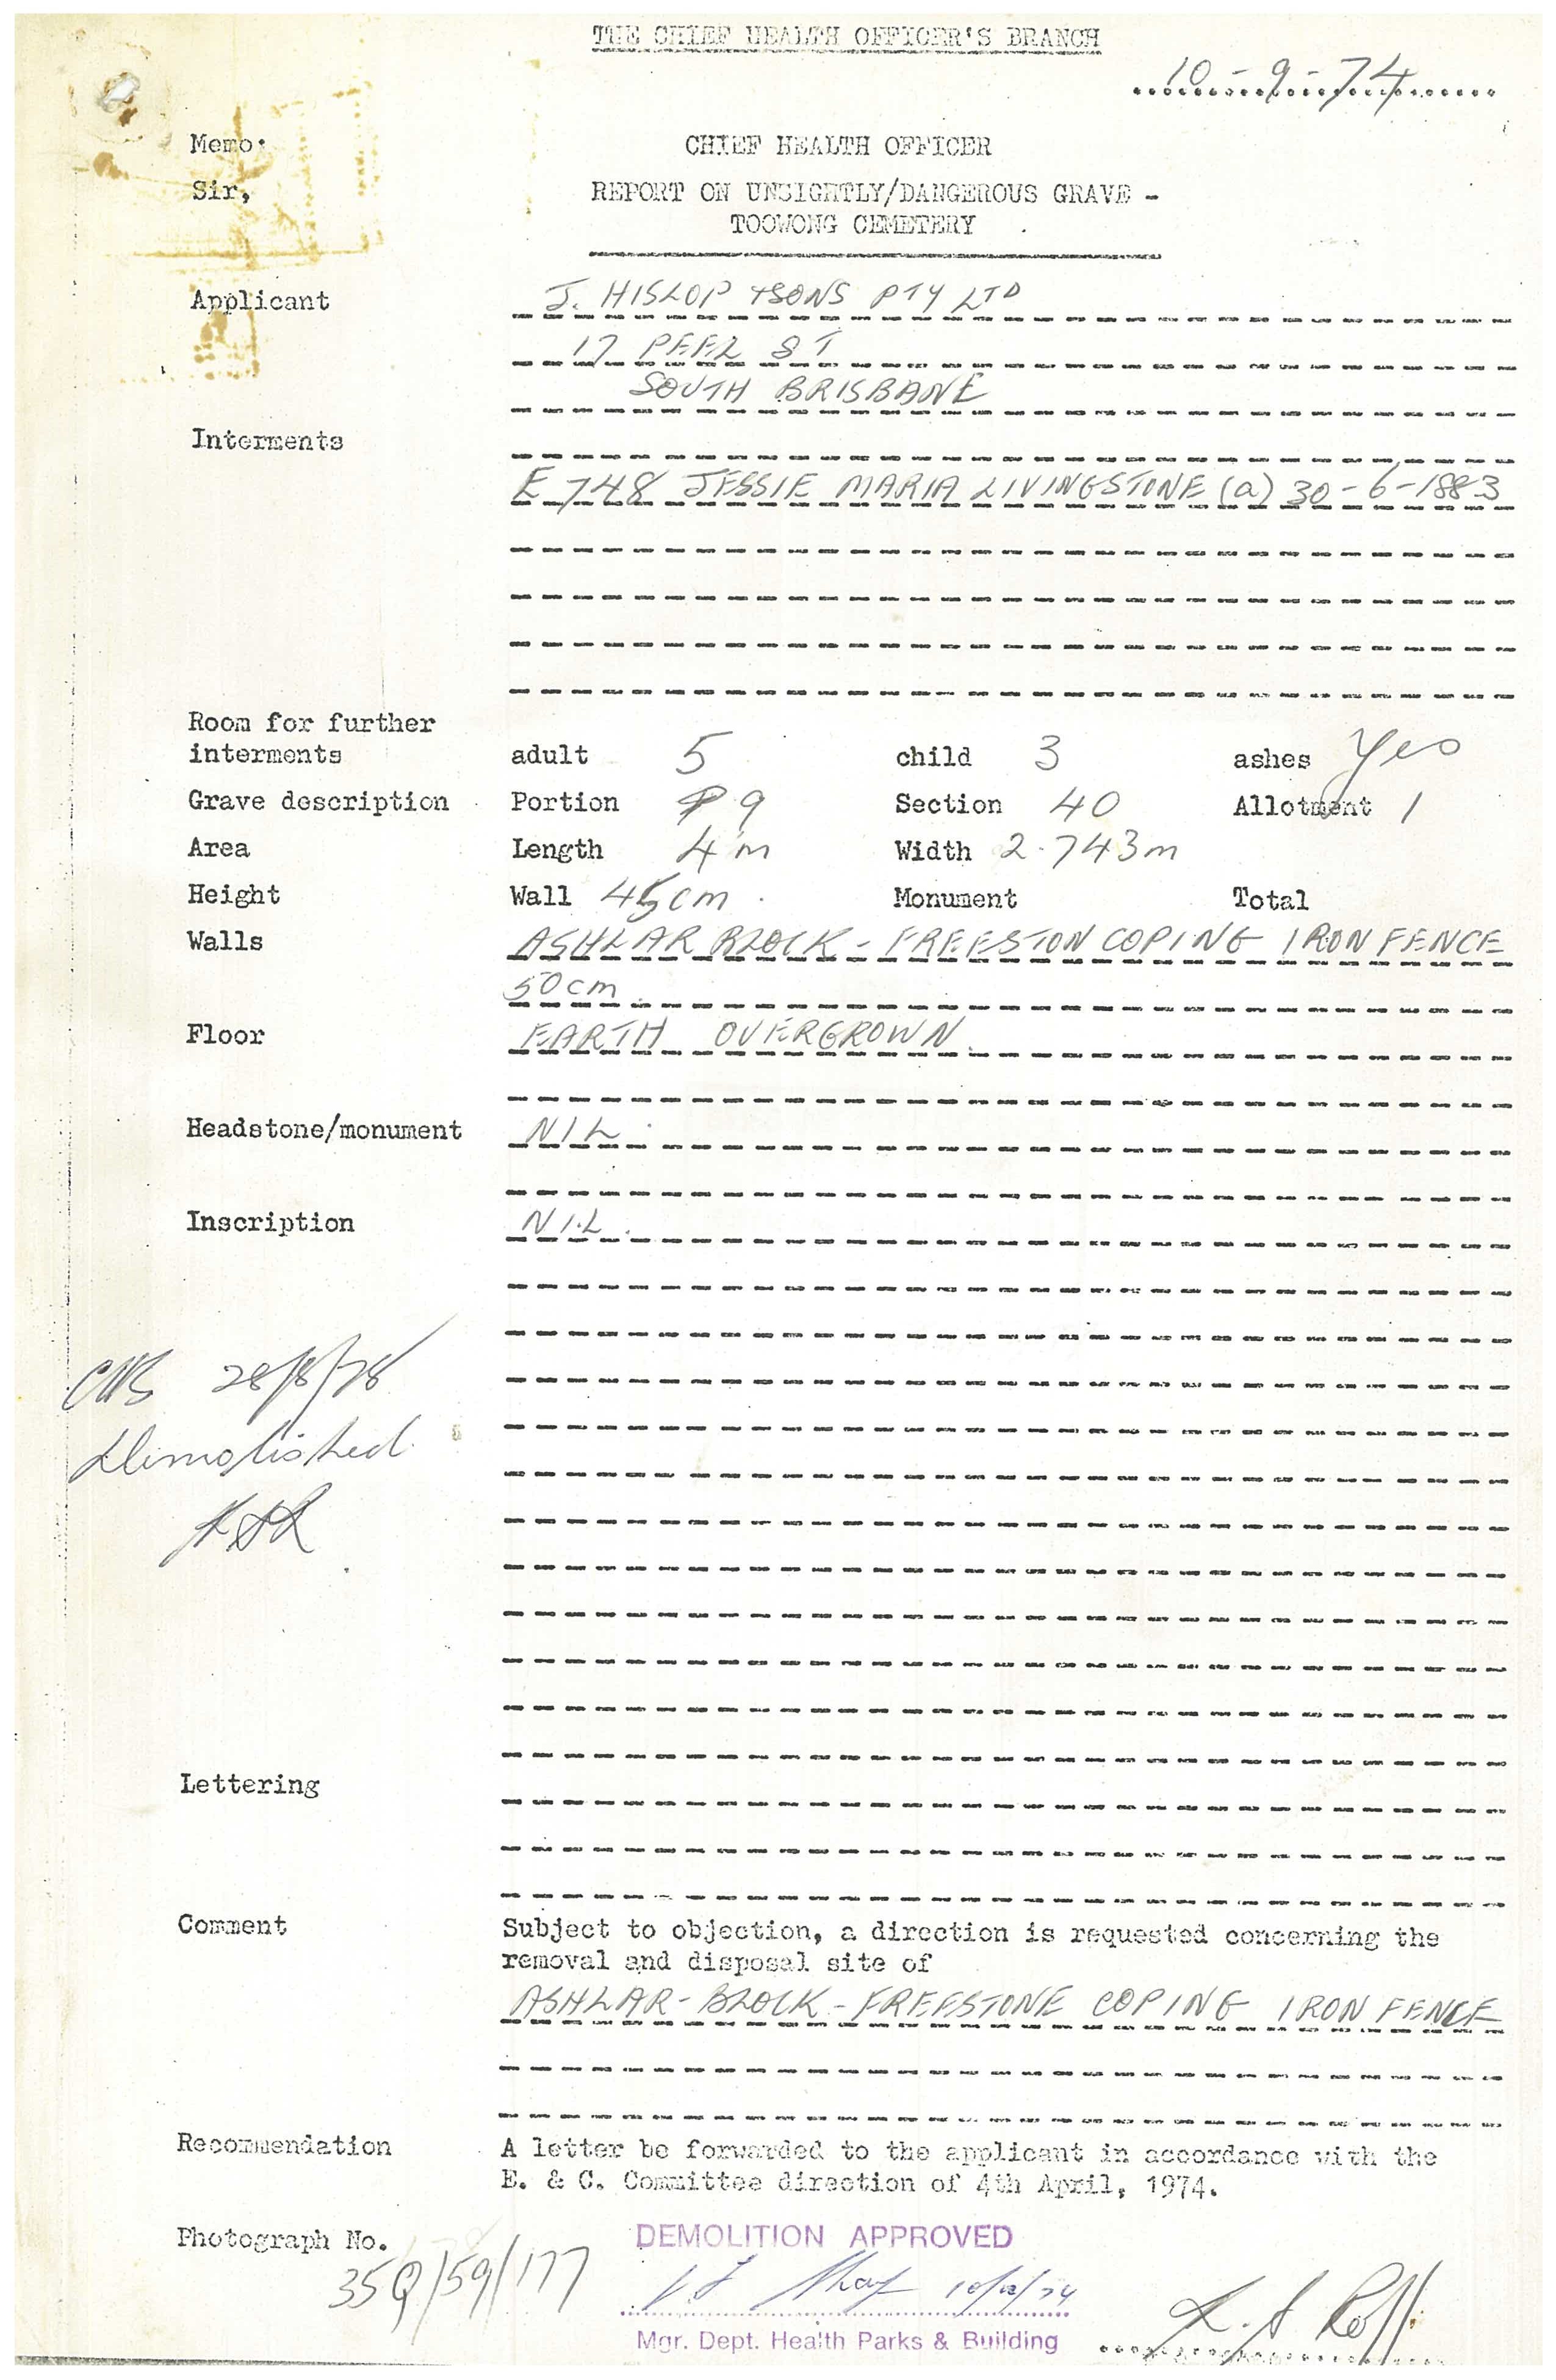 THE CHIEF HEALTH OFFICER'S BRANCH
10-9-74
Memo:
CHIEF HEALTH OFFICER
Sir,
REPORT ON UNSIGHTLY/DANGEROUS GRAVE -
TOOWONG CEMETERY
Applicant J. HISLOP & SONS PTY LTD
17 PEEL ST
SOUTH BRISBANE
Interments
E 748 JESSIE MARIA LIVINGSTONE (a) 30-6-1883
Room for further
interments adult 5 child 3 ashes Yes
Grave description Portion 9 Section 40 Allotment 1
Area Length 4m Width 2.743m
Height Wall 45cm. Monument Total
Walls ASHLAR BLOCK - FREESTON COPING IRON FENCE
50cm
Floor EARTH OVERGROWN.
Headstone/monument NIL.
Inscription NIL.
28/8/78
Demolished
Lettering
Comment Subject to objection, a direction is requested concerning the
removal and disposal site of
ASHLAR-BLOCK-FREESTONE COPING IRON FENCE
Recommendation A letter be forwarded to the applicant in accordance with the
E. & C. Committee direction of 4th April, 1974.
Photograph No. 35Q/59/177
DEMOLITION APPROVED
10/12/74
Mgr. Dept. Health Parks & Building